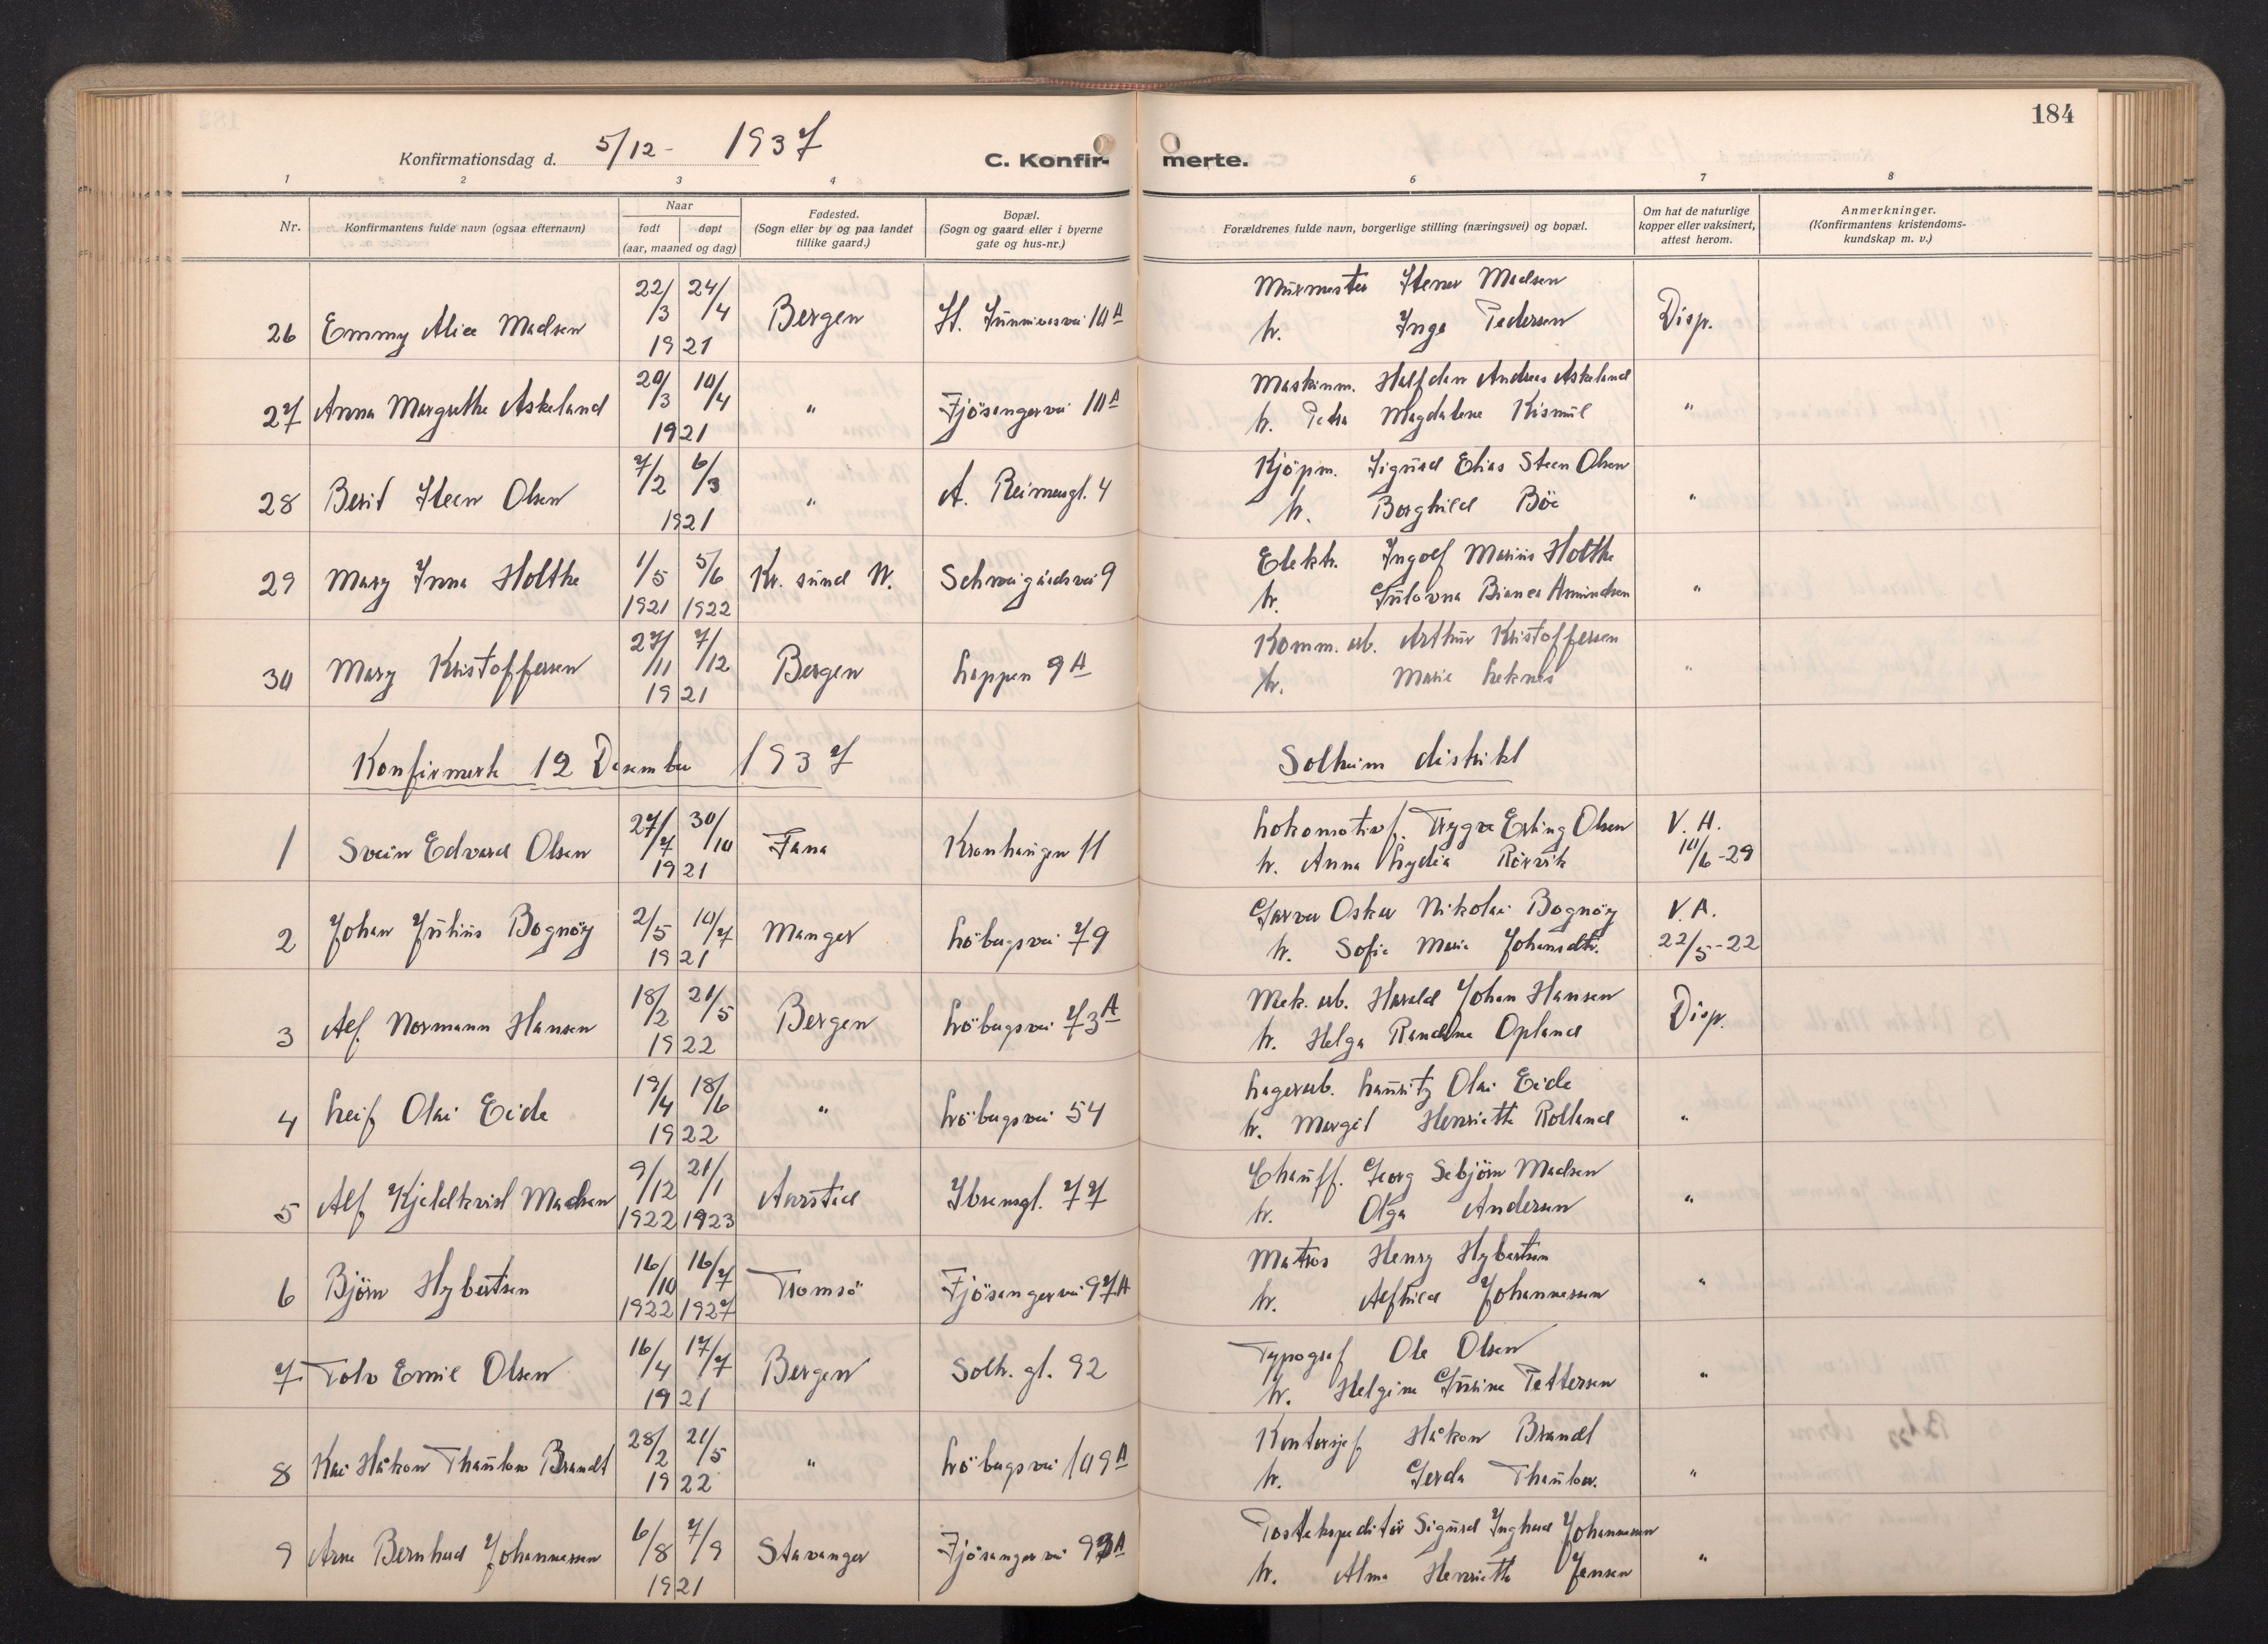 184
Konfirmationsdag d. 5/12 - 1937 C. Konfirmerte.
1 2 3 4 6 7 8
Nr. Konfirmantens fulde navn (ogsaa efternavn) Naar født døpt (aar, maaned og dag) Fødested. (Sogn eller by og paa landet tillike gaard.) Bopæl. (Sogn og gaard eller i byerne gate og hus-nr.) Forældrenes fulde navn, borgerlige stilling (næringsvei) og bopæl. Om hat de naturlige kopper eller vaksinert, attest herom. Anmerkninger. (Konfirmantens kristendoms-kundskap m. v.)
26 Emmy Alice Madsen 22/3 24/4 1921 Bergen St. Sunnivasvei 10A Murmester Stener Madsen
h. Inga Pedersen Disp.
27 Anna Margrethe Askeland 20/3 10/4 1921 " Fjösangervei 10A Maskinm. Halfdan Andreas Askeland
h. Petra Magdalene Kismul "
28 Berit Steen Olsen 7/2 6/3 1921 " A. Reimersgt. 4 Kjöpm. Sigurd Elias Steen Olsen
h. Borghild Böe "
29 Mary Inna Holthe 1/5 1921 5/6 1922 Kr. sund N. Schweigårdsvei 9 Elektr. Ingolf Marius Holthe
h. Gulovna Bianca Amundsen "
30 Mary Kristoffersen 27/11 7/12 1921 Bergen Lappen 9A Komm. arb. Arthur Kristoffersen
h. Marie Leknes "
Konfirmerte 12 Desember 1937 Solheim distrikt
1 Svein Edvard Olsen 27/7 30/10 1921 Fana Kronhaugen 11 Lokomotivf. Trygve Erling Olsen
h. Anna Lydia Rørvik V. A. 10/6-29
2 Johan Julius Bognöy 2/5 10/7 1921 Manger Löbergsvei 79 Garver Oskar Nikolai Bognöy
h. Sofie Marie Johansdtr. V. A. 22/5-22
3 Alf Normann Hansen 18/2 21/5 1922 Bergen Löbergsvei 73A Mek. arb. Harald Johan Hansen
h. Helga Randine Opland Disp.
4 Leif Olai Eide 19/4 18/6 1922 " Löbergsvei 54 Lagerarb. Lauritz Olai Eide
h. Margit Henriette Rolland "
5 Alf Kjeldkvist Madsen 9/12 1922 21/1 1923 Aarstad Ibsensgt. 77 Chauff. Georg Sebjörn Madsen
h. Olga Andersen "
6 Björn Hybertsen 16/10 1922 16/7 1927 Tromsö Fjösangervei 97A Matros Henry Hybertsen
h. Alfhild Johannessen "
7 Tolv Emil Olsen 16/4 17/7 1921 Bergen Solh. gt. 92 Typograf Ole Olsen
h. Helgine Gurine Pettersen "
8 Kai Håkon Thaulow Brandt 28/2 21/5 1922 " Löbergsvei 109A Kontorsjef Håkon Brandt
h. Gerda Thaulow. "
9 Arne Bernhard Johannessen 6/8 7/9 1921 Stavanger Fjösangervei 93A Postekspeditör Sigurd Inghard Johannessen
h. Alma Henriette Jensen "